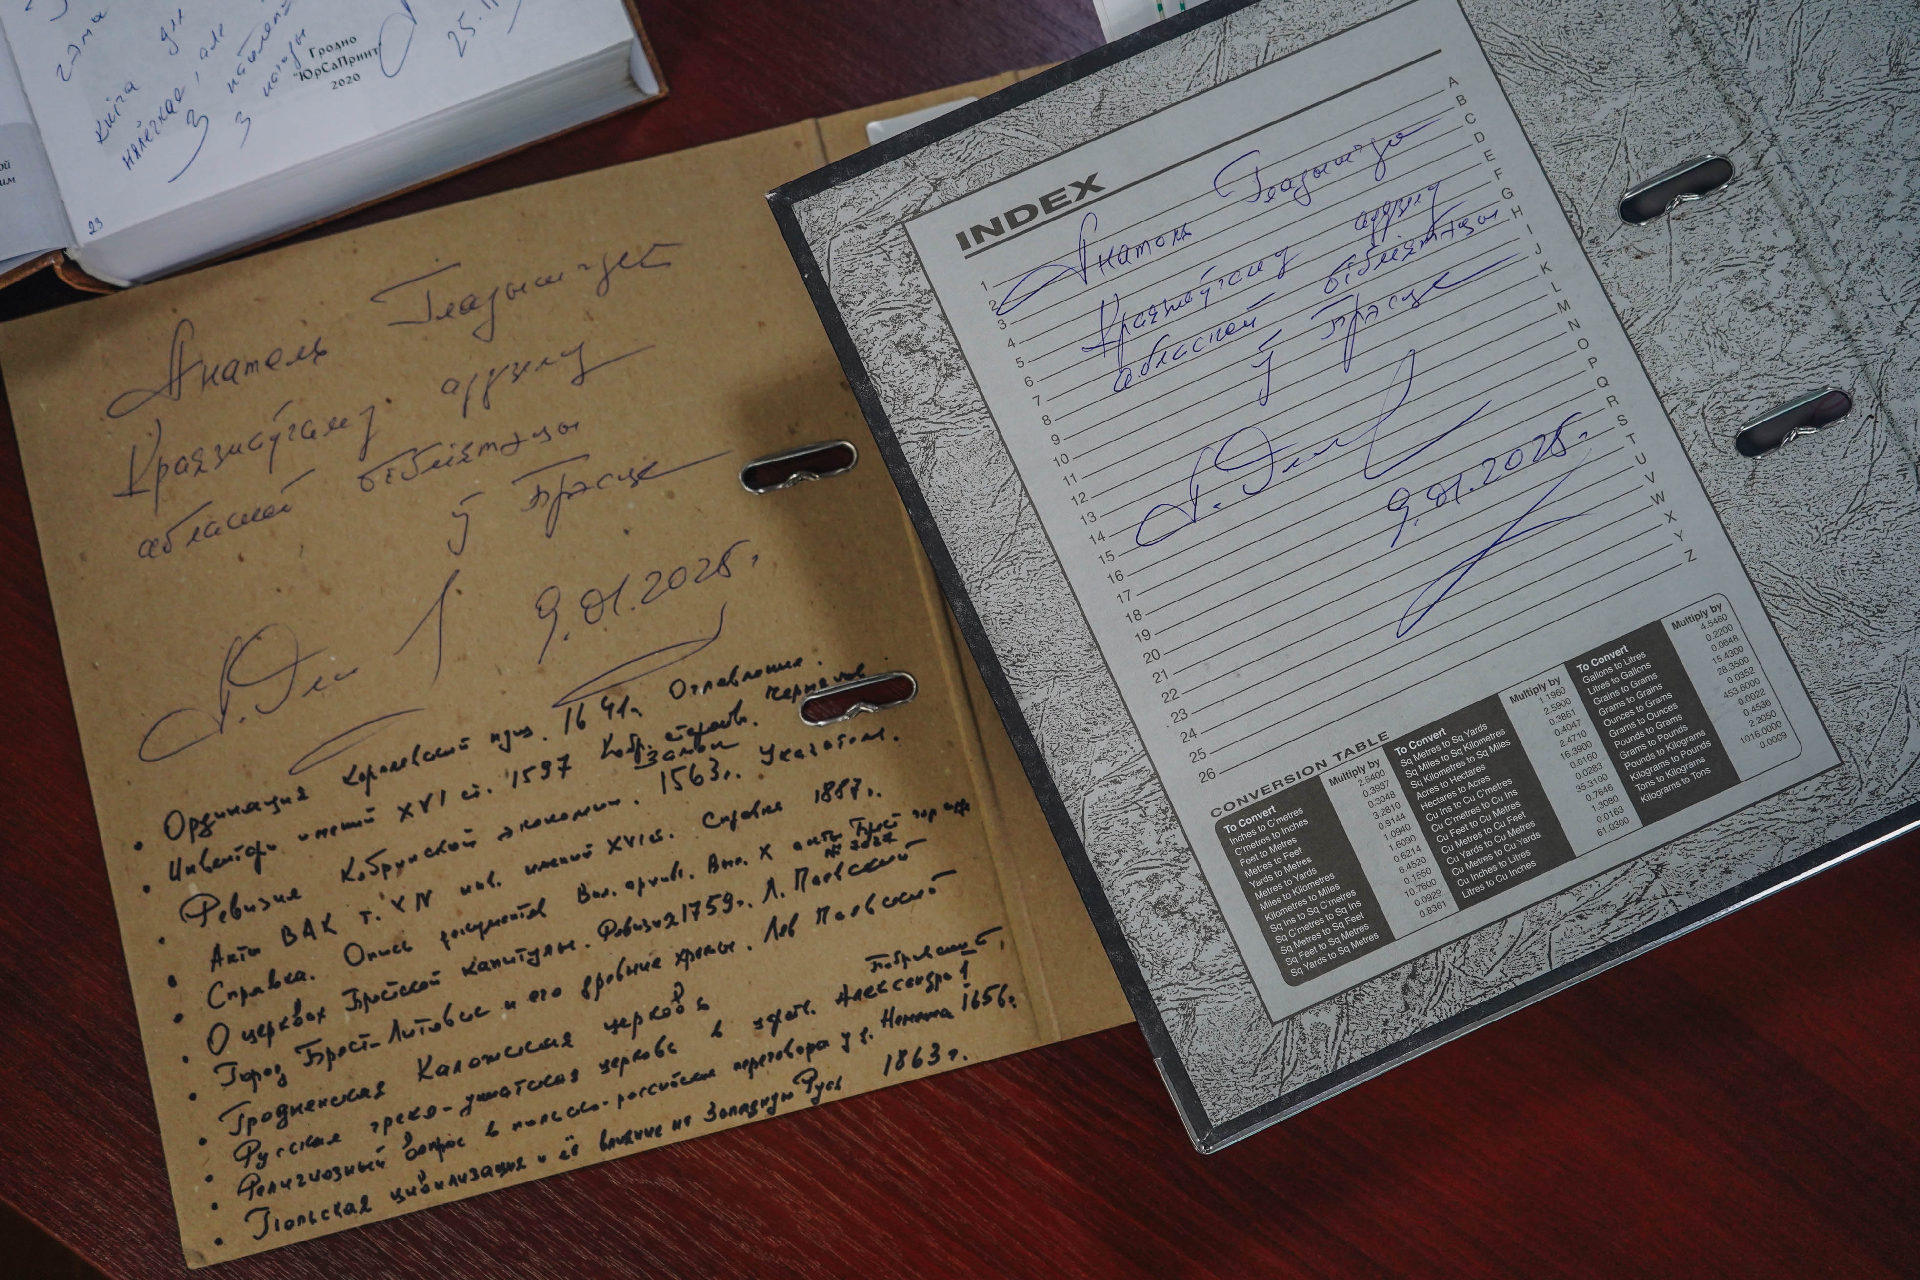 кніга для
Гродно
"ЮрСаПринт"
2020
25.11
23
ой
им
Анатоль Гладышчук
Краязнаўчаму аддзелу
абласной бібліятэцы
ў Брэсце
9.01.2025г.
• Ординация королевских пущ. 1641г. Оглавление.
• Инвентари имений XVI ст. 1597 Кобр. староств. Черначов
замок
• Ревизия Кобринской экономии. 1563г. Указател.
• Акты ВАК т. XIV инв. имений XVI в. Справка 1887г.
• Справка. Опись документов Вил. архив. Вып. X акты Брест гор
• О церквах Брестской капитулы. Ревизия 1759г. Л. Паевский
• Город Брест-Литовск и его древние храмы. Лев Паевский
• Гродненская Каложская церковь
• Русская греко-униатская церковь в царств. Александра I
• Религиозный вопрос в польско-российских переговорах у д. Немежа 1656г.
• Польская цивилизация и её влияние на Западную Русь 1863г.
INDEX
A
B
C
D
E
F
G
H
I
J
K
L
M
N
O
P
Q
R
S
T
U
V
W
X
Y
Z
1
2
3
4
5
6
7
8
9
10
11
12
13
14
15
16
17
18
19
20
21
22
23
24
25
26
Анатоль Гладышчук
Краязнаўчаму аддзелу
абласной бібліятэцы
ў Брэсце
9.01.2025г.
CONVERSION TABLE
To Convert Multiply by
Inches to C'metres 2.5400
C'metres to Inches 0.3937
Feet to Metres 0.3048
Metres to Feet 3.2810
Yards to Metres 0.9144
Metres to Yards 1.0940
Miles to Kilometres 1.6090
Kilometres to Miles 0.6214
Sq Ins to Sq C'metres 6.4520
Sq C'metres to Sq Ins 0.1550
Sq Metres to Sq Feet 10.7600
Sq Feet to Sq Metres 0.0929
Sq Yards to Sq Metres 0.8361
To Convert Multiply by
Sq Metres to Sq Yards 1.1960
Sq Miles to Sq Kilometres 2.5900
Sq Kilometres to Sq Miles 0.3861
Acres to Hectares 0.4047
Hectares to Acres 2.4710
Cu Ins to Cu C'metres 16.3900
Cu C'metres to Cu Ins 0.0160
Cu Feet to Cu Metres 0.0283
Cu Metres to Cu Feet 35.3100
Cu Yards to Cu Metres 0.7646
Cu Metres to Cu Yards 1.3080
Cu Inches to Litres 0.0163
Litres to Cu Inches 61.0300
To Convert Multiply by
Gallons to Litres 4.5460
Litres to Gallons 0.2200
Grains to Grams 0.0648
Grams to Grains 15.4300
Ounces to Grams 28.3500
Grams to Ounces 0.0352
Pounds to Grams 453.6000
Grams to Pounds 0.0022
Pounds to Kilograms 0.4536
Kilograms to Pounds 2.2050
Tons to Kilograms 1016.0000
Kilograms to Tons 0.0009